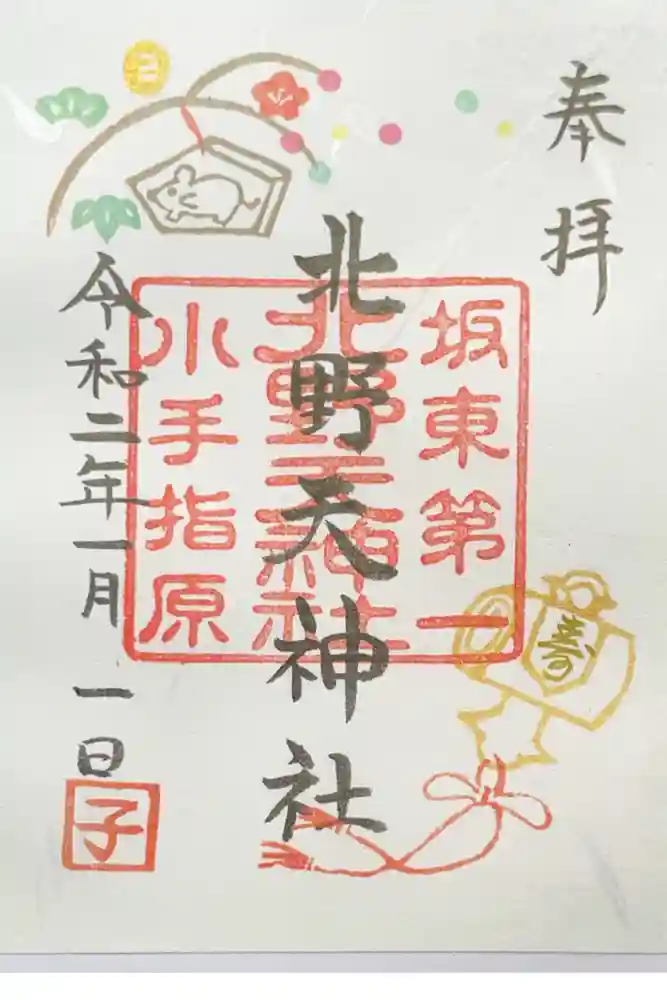 奉拝
坂東第一
北野天神社
北野天神社
小手指原
令和二年一月一日
子
寿